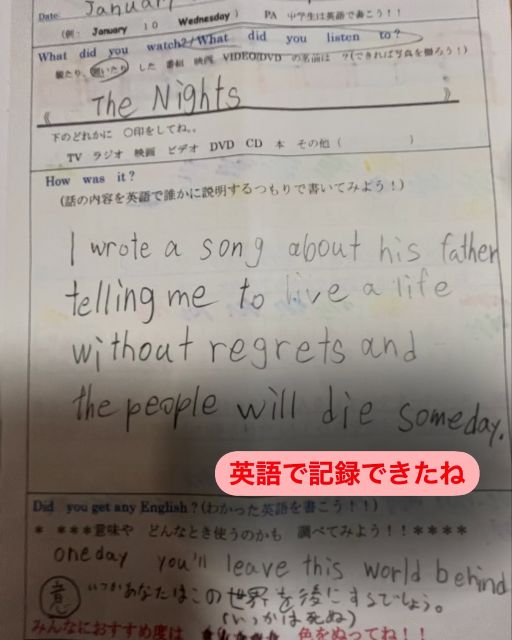 Date January
(例： January 10 Wednesday ) PA 中学生は英語で書こう！！
What did you watch?/What did you listen to?
観たり、聞いたり した 番組 映画 VIDEO/DVD の名前は ?(できれば写真を撮ろう！)
《 The Nights 》
下のどれかに ○印をしてね。
TV ラジオ 映画 ビデオ DVD CD 本 その他 ( )
How was it?
(話の内容を英語で誰かに説明するつもりで書いてみよう！)
I wrote a song about his father
telling me to live a life
without regrets and
the people will die someday.
英語で記録できたね
Did you get any English? (わかった英語を書こう！！)
* ***意味や どんなとき使うのかも 調べてみよう！！****
oneday you'll leave this world behind
意 いつかあなたはこの世界を後にするでしょう。
(いつかは死ぬ)
みんなにおすすめ度は ★★★★★ 色をぬってね！！